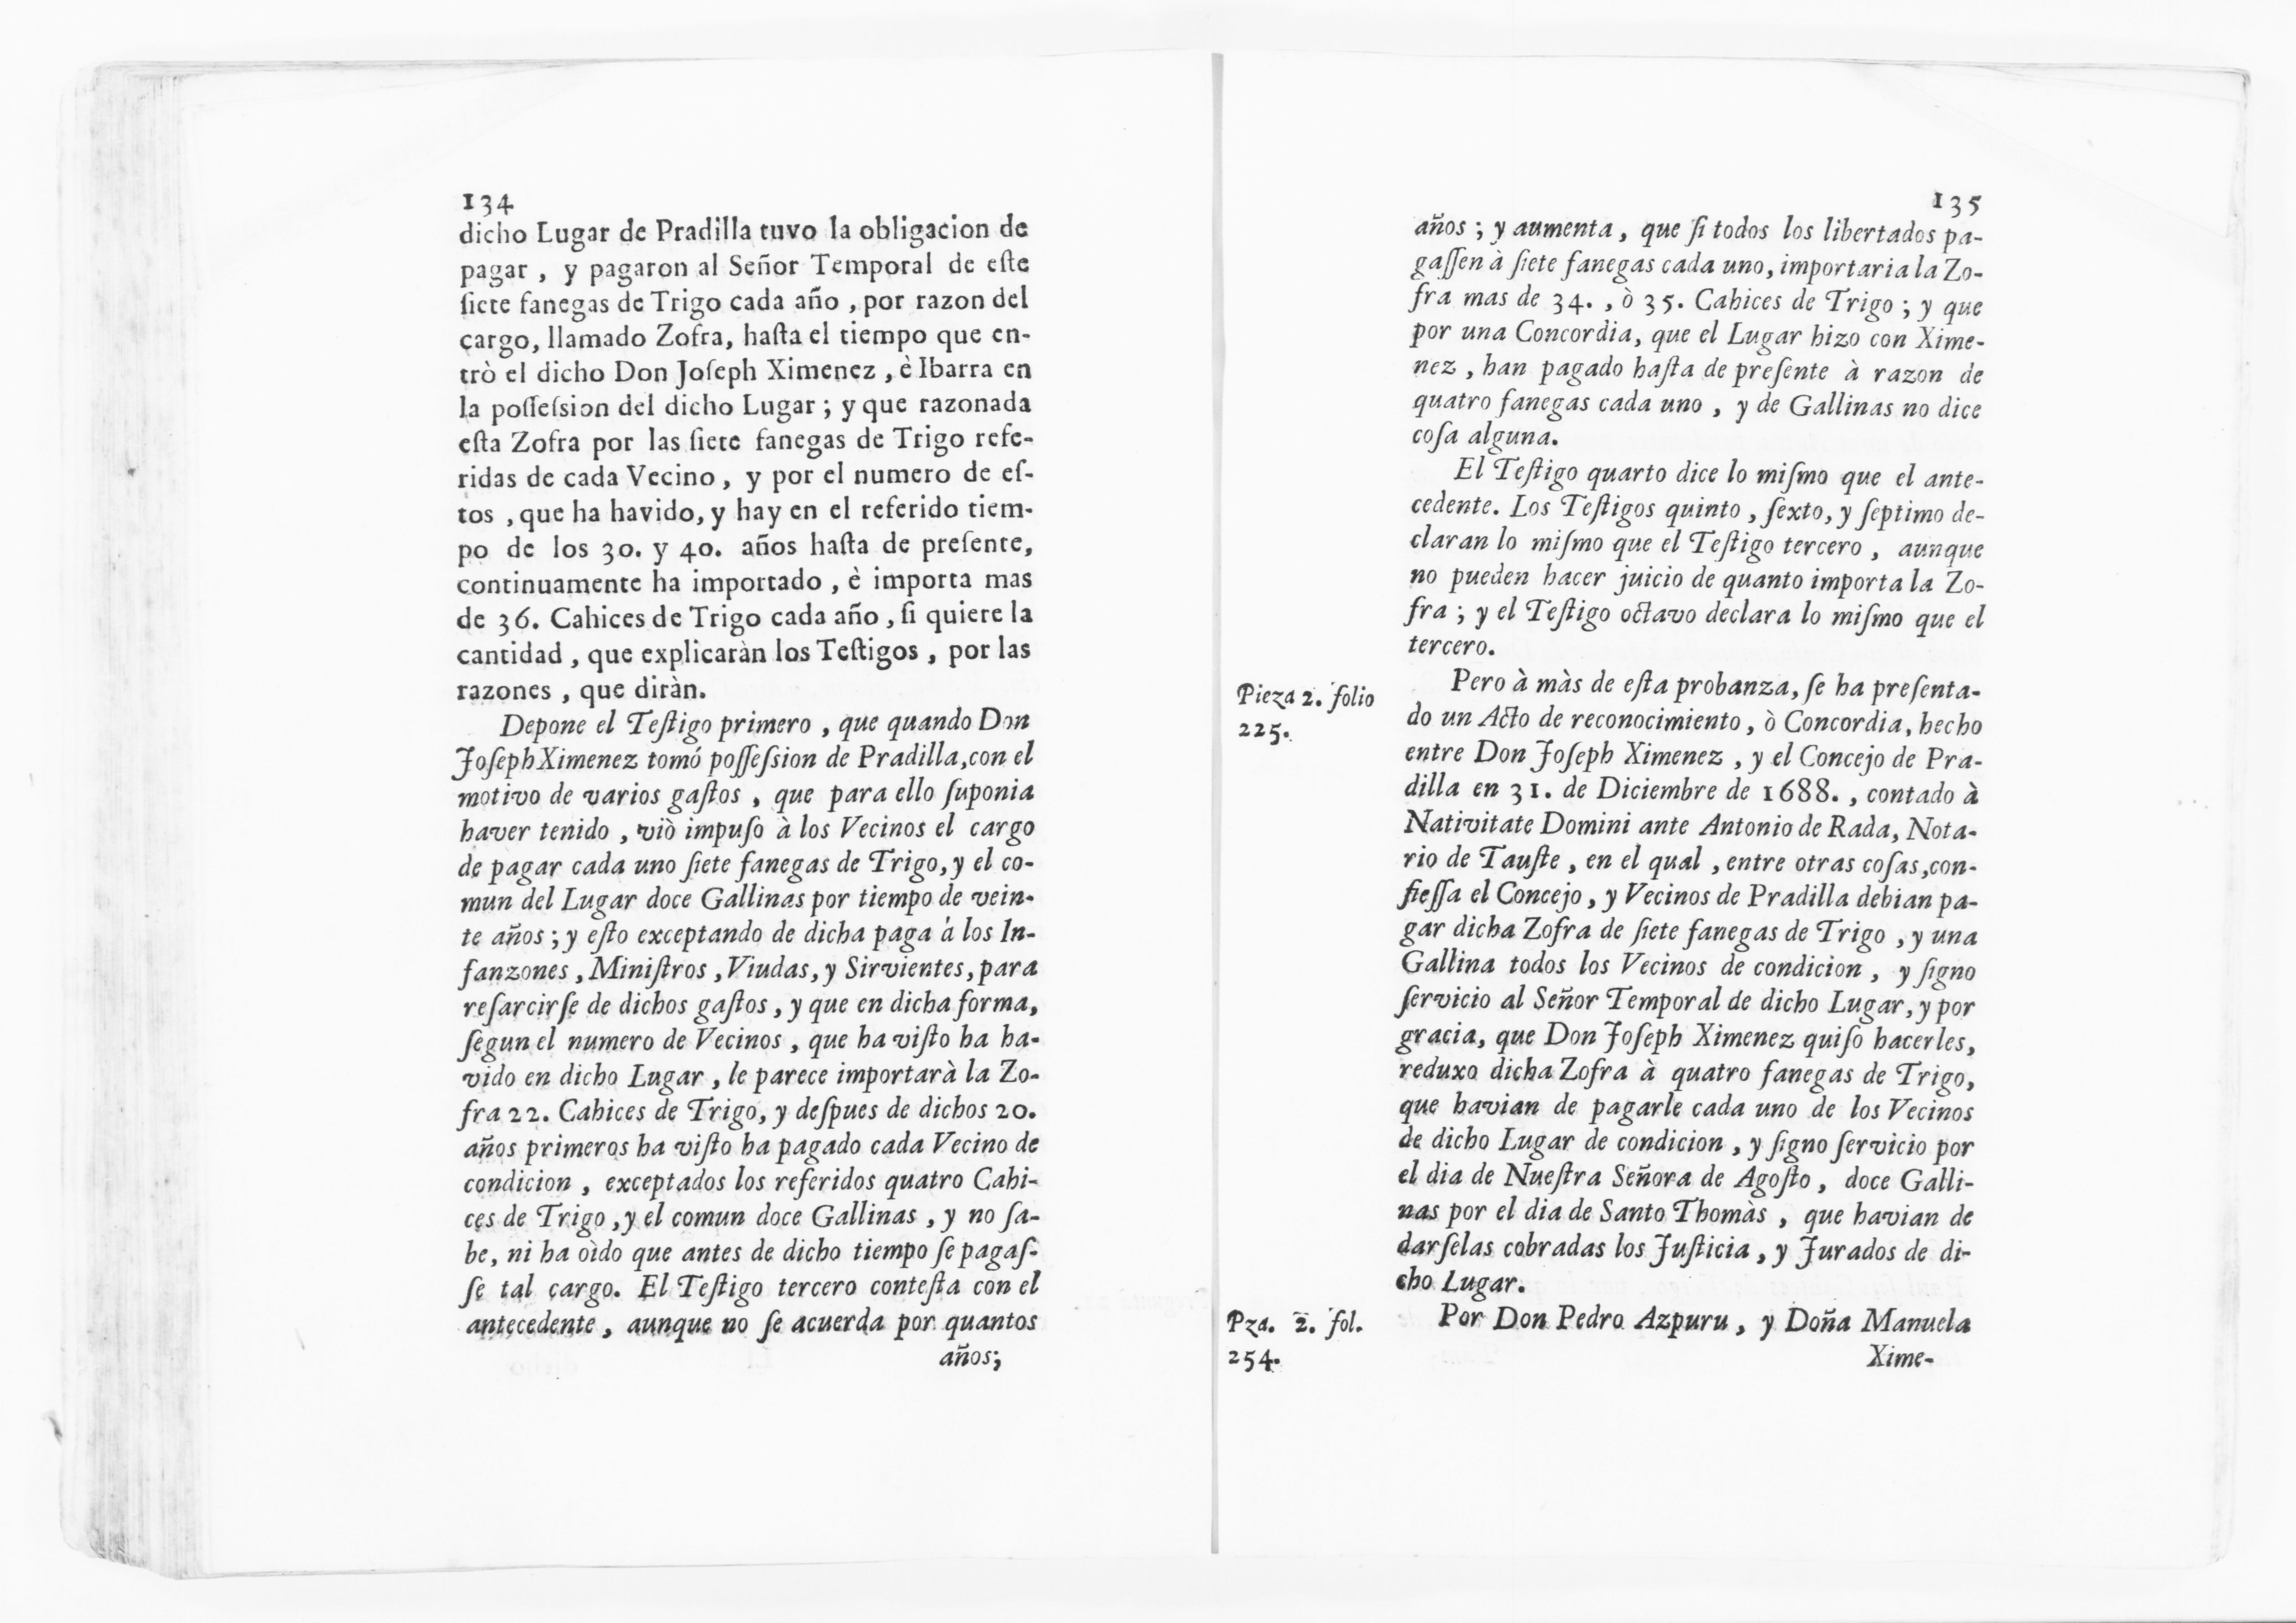 134
dicho Lugar de Pradilla tuvo la obligacion de
pagar , y pagaron al Señor Temporal de eſte
ſiete fanegas de Trigo cada año , por razon del
cargo, llamado Zofra, haſta el tiempo que en-
trò el dicho Don Joſeph Ximenez , è Ibarra en
la poſſeſsion del dicho Lugar ; y que razonada
eſta Zofra por las ſiete fanegas de Trigo refe-
ridas de cada Vecino , y por el numero de eſ-
tos , que ha havido, y hay en el referido tiem-
po de los 30. y 40. años haſta de preſente,
continuamente ha importado , è importa mas
de 36. Cahices de Trigo cada año , ſi quiere la
cantidad , que explicaràn los Teſtigos , por las
razones , que diràn.
Depone el Teſtigo primero , que quando Don
Joſeph Ximenez tomó poſſeſsion de Pradilla,con el
motivo de varios gaſtos , que para ello ſuponia
haver tenido , viò impuſo à los Vecinos el cargo
de pagar cada uno ſiete fanegas de Trigo, y el co-
mun del Lugar doce Gallinas por tiempo de vein-
te años ; y eſto exceptando de dicha paga á los In-
fanzones , Miniſtros , Viudas, y Sirvientes, para
reſarcirſe de dichos gaſtos , y que en dicha forma,
ſegun el numero de Vecinos , que ha viſto ha ha-
vido en dicho Lugar , le parece importarà la Zo-
fra 22. Cahices de Trigo, y deſpues de dichos 20.
años primeros ha viſto ha pagado cada Vecino de
condicion , exceptados los referidos quatro Cahi-
ces de Trigo , y el comun doce Gallinas , y no ſa-
be, ni ha oìdo que antes de dicho tiempo ſe pagaſ-
ſe tal cargo. El Teſtigo tercero conteſta con el
antecedente , aunque no ſe acuerda por quantos
años;
135
años ; y aumenta , que ſi todos los libertados pa-
gaſſen à ſiete fanegas cada uno, importaria la Zo-
fra mas de 34. , ò 35. Cahices de Trigo ; y que
por una Concordia, que el Lugar hizo con Xime-
nez , han pagado haſta de preſente à razon de
quatro fanegas cada uno , y de Gallinas no dice
coſa alguna.
El Teſtigo quarto dice lo miſmo que el ante-
cedente. Los Teſtigos quinto , ſexto, y ſeptimo de-
claran lo miſmo que el Teſtigo tercero , aunque
no pueden hacer juicio de quanto importa la Zo-
fra ; y el Teſtigo octavo declara lo miſmo que el
tercero.
Pieza 2. folio
225.
Pero à màs de eſta probanza, ſe ha preſenta-
do un Acto de reconocimiento , ò Concordia, hecho
entre Don Joſeph Ximenez , y el Concejo de Pra-
dilla en 31. de Diciembre de 1688. , contado à
Nativitate Domini ante Antonio de Rada, Nota-
rio de Tauſte , en el qual , entre otras coſas,con-
fieſſa el Concejo, y Vecinos de Pradilla debian pa-
gar dicha Zofra de ſiete fanegas de Trigo , y una
Gallina todos los Vecinos de condicion , y ſigno
ſervicio al Señor Temporal de dicho Lugar, y por
gracia, que Don Joſeph Ximenez quiſo hacerles,
reduxo dicha Zofra à quatro fanegas de Trigo,
que havian de pagarle cada uno de los Vecinos
de dicho Lugar de condicion , y ſigno ſervicio por
el dia de Nueſtra Señora de Agoſto , doce Galli-
nas por el dia de Santo Thomàs , que havian de
darſelas cobradas los Juſticia , y Jurados de di-
cho Lugar.
Pza. 2. fol.
254.
Por Don Pedro Azpuru , y Doña Manuela
Xime-